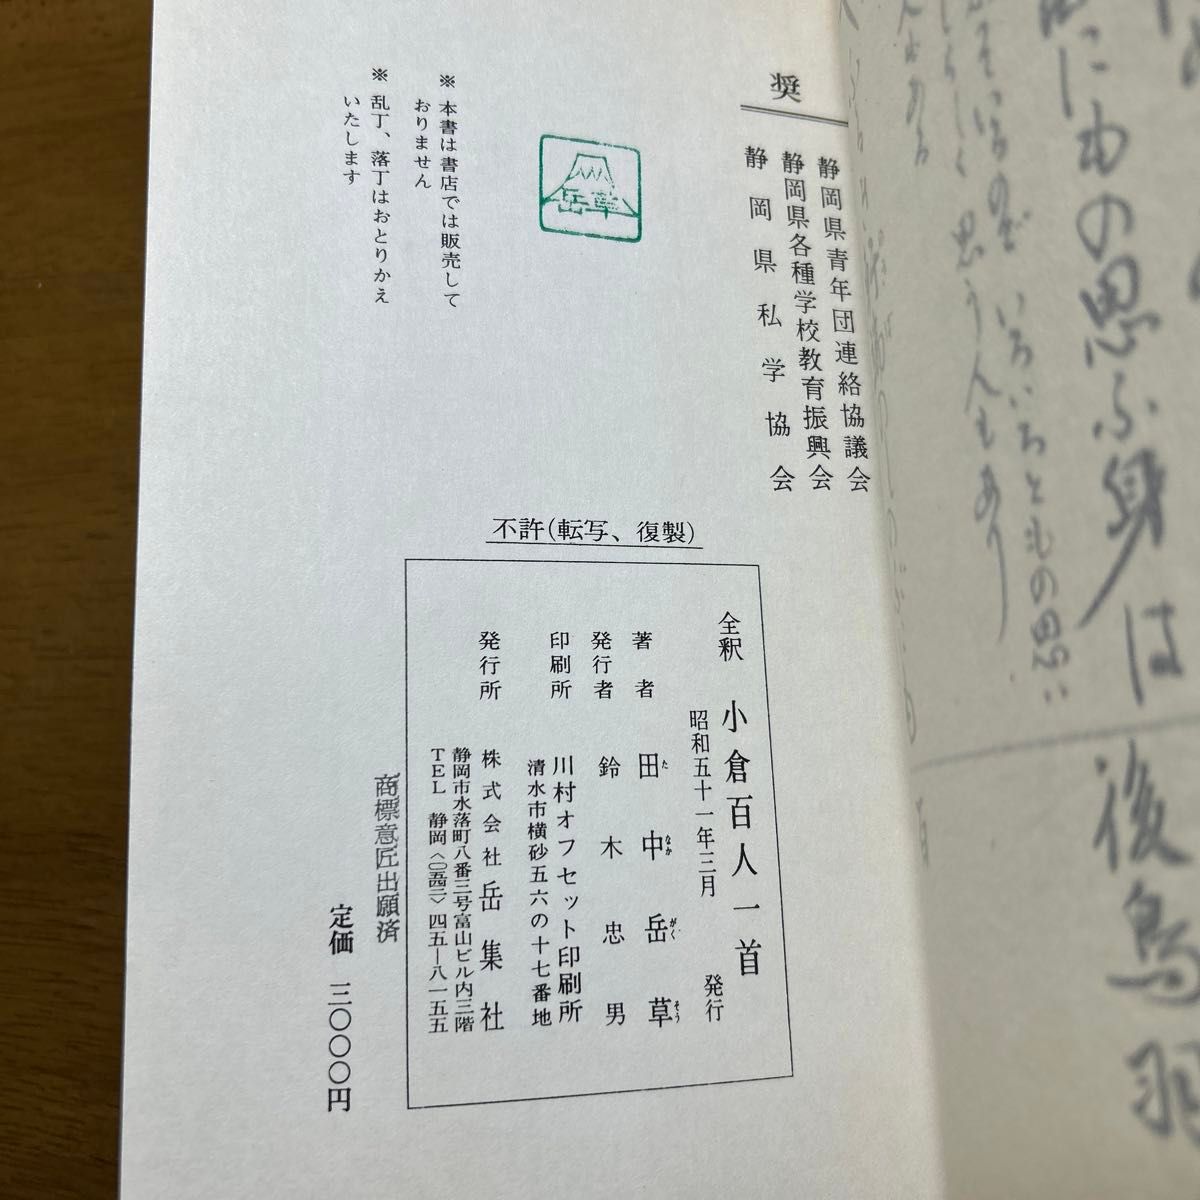 後鳥羽
にもの思ふ身は
いろいろともの思い
思う人もあり
奨
静岡県青年団連絡協議会
静岡県各種学校教育振興会
静岡県私学協会
岳草
※本書は書店では販売して
おりません
※乱丁、落丁はおとりかえ
いたします
不許(転写、復製)
全釈 小倉百人一首
昭和五十一年三月 発行
著者 田中岳草
た なか がく そう
発行者 鈴木忠男
印刷所 川村オフセット印刷所
清水市横砂五六の十七番地
発行所 株式会社岳集社
静岡市水落町八番三号富山ビル内三階
TEL 静岡〈〇五四二〉四五―八一五五
商標意匠出願済
定価 三〇〇〇円